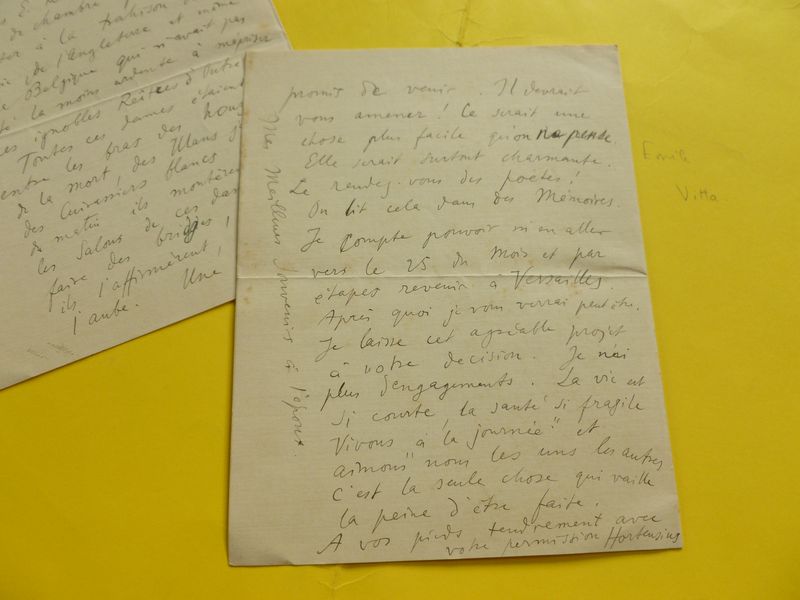 de chambre !
à la trahison de
de l'Angleterre et même
Belgique qui n'avait pas
la moins ardente à mépriser
ces ignobles Reîtres d'Outre
Toutes ces dames étaient
entre les bras des hous
de la mort, des Ulans
des Cuirassiers blancs
du matin ils montèrent
les Salons de ces dam
faire des bridges !
ils l'affirmèrent,
l'aube. Une
promis de venir. Il devrait
vous amener ! Ce serait une
chose plus facile qu'on ne pense
Elle serait surtout charmante.
Le rendez-vous des poètes !
On lit cela dans des Mémoires.
Je compte pouvoir m'en aller
vers le 25 du mois et par
étapes revenir à Versailles.
Après quoi je vous verrai peut être.
Je laisse cet agréable projet
à votre decision. Je n'ai
plus d'engagements. La vie est
si courte, la santé si fragile
Vivons à la journée" et
aimons" nous les uns les autres
c'est la seule chose qui vaille
la peine d'être faite.
A vos pieds tendrement avec
votre permission Hortensius
Mes Meilleurs Souvenirs à l'époux.
Emile
Vitta